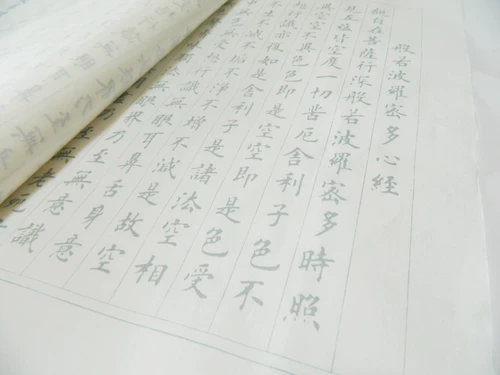 般若波羅蜜多心經
觀自在菩薩行深般若波羅蜜多時照
見五蘊皆空度一切苦厄舍利子色不
異空空不異色色即是空空即是色受
想行識亦復如是舍利子是諸法空相
不生不滅不垢不淨不增不減是故空
受想行識無眼耳鼻舌身意
眼界乃至無意識